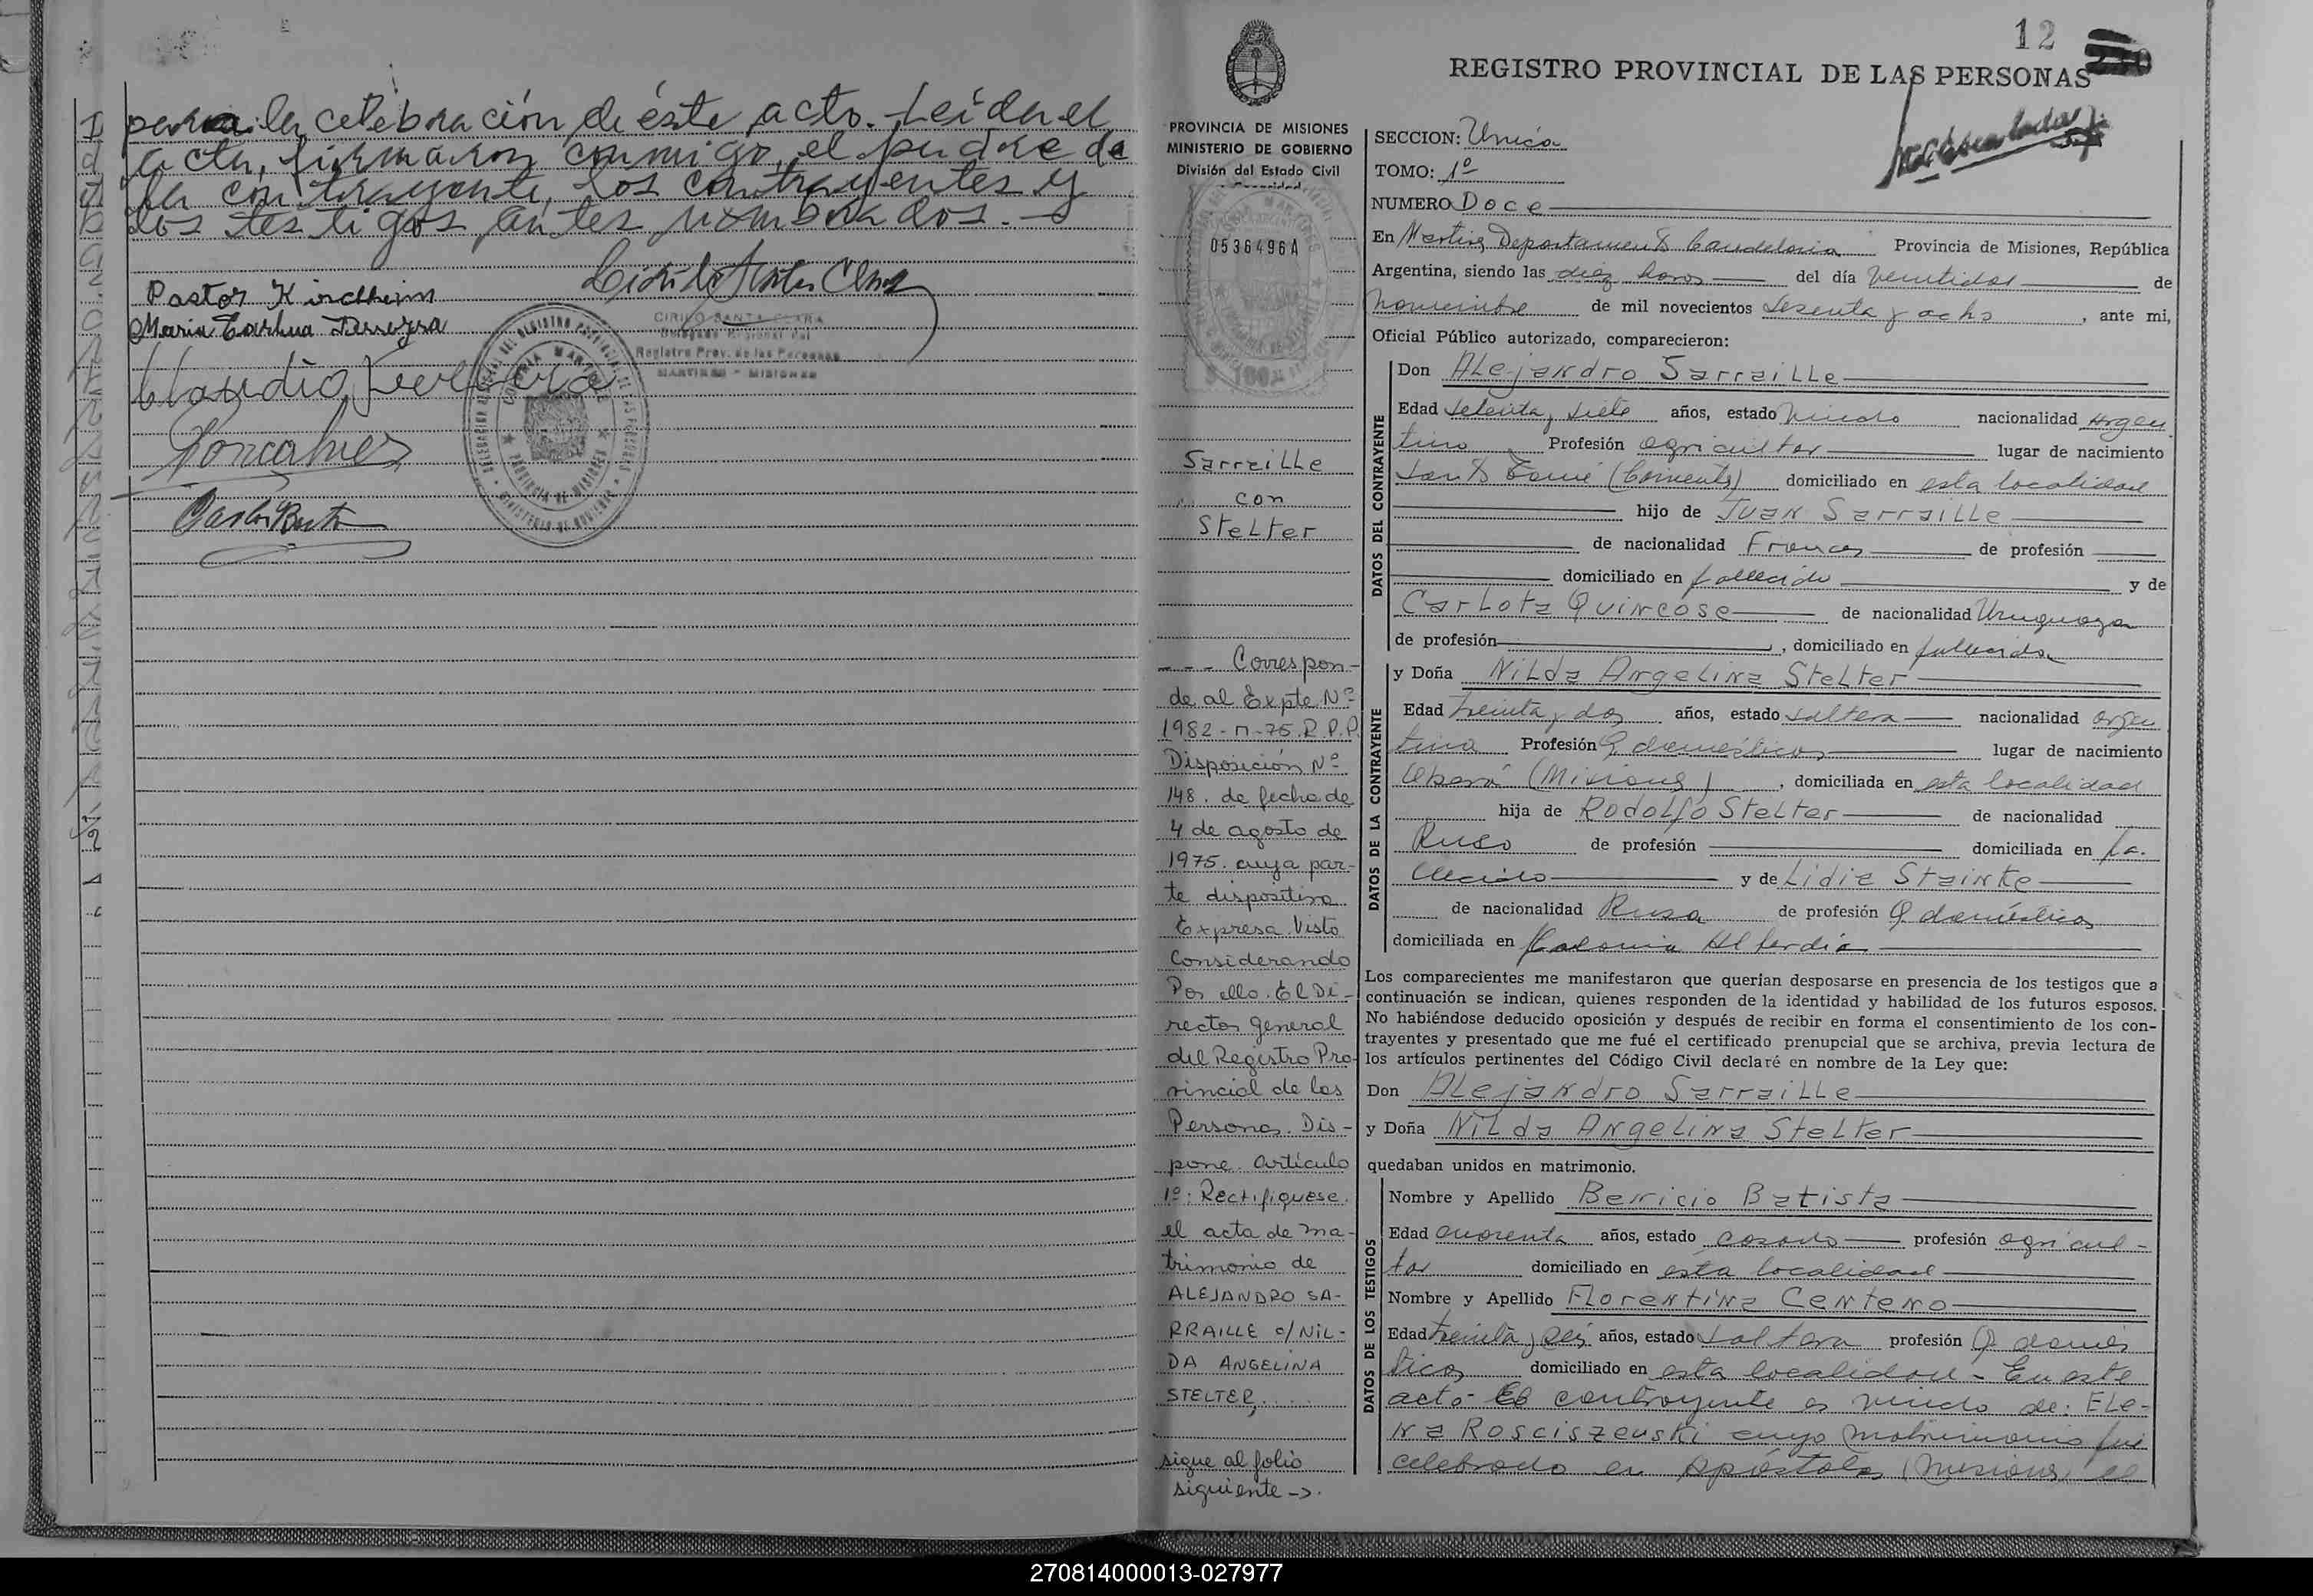 para la celebración de éste acto. Leida el
acta, firmaron conmigo, el padre de
la contrayente, los contrayentes y
los testigos antes nombrados.
Pastor Kirchheim
CIRILO SANTA CLARA
Delegado Regional
Registro Prov. de las Personas
MARTIRES - MISIONES
12
REGISTRO PROVINCIAL DE LAS PERSONAS
PROVINCIA DE MISIONES
MINISTERIO DE GOBIERNO
División del Estado Civil
0536496A
Sarraille
con
Stelter
--- Correspon-
de al Expte Nº
1982-M-75.R.P.P.
Disposición Nº
148. de fecha de
4 de agosto de
1975. cuya par-
te dispositiva
Expresa. Visto
Considerando
Por ello. El Di-
rector general
del Registro Pro-
vincial de las
Personas. Dis-
pone. Artículo
1º: Rectifíquese.
el acta de ma-
trimonio de
ALEJANDRO SA-
RRAILLE c/ NIL-
DA ANGELINA
STELTER,....
sigue al folio
siguiente ->.
SECCION: Unica
TOMO: 1º
NUMERO Doce
En Martires Departamento Candelaria Provincia de Misiones, República
Argentina, siendo las diez horas del día veintidos de
noviembre de mil novecientos sesenta y ocho, ante mi,
Oficial Público autorizado, comparecieron:
DATOS DEL CONTRAYENTE
Don Alejandro Sarraille
Edad setenta y siete años, estado viudo nacionalidad Argen
tino Profesión agricultor lugar de nacimiento
Santo Tomé (Corrientes) domiciliado en esta localidad
hijo de Juan Sarraille
de nacionalidad Frances de profesión
domiciliado en fallecido y de
Carlota Quincose de nacionalidad Uruguaya
de profesión, domiciliado en fallecida
DATOS DE LA CONTRAYENTE
y Doña Nilda Angelina Stelter
Edad treinta y dos años, estado soltera nacionalidad argen
tina Profesión Q domésticos lugar de nacimiento
Oberá (Misiones), domiciliada en esta localidad
hija de Rodolfo Stelter de nacionalidad
Ruso de profesión domiciliada en fa-
llecido y de Lidia Stainke
de nacionalidad Rusa de profesión Q domésticos
domiciliada en Colonia Alberdi
Los comparecientes me manifestaron que querían desposarse en presencia de los testigos que a
continuación se indican, quienes responden de la identidad y habilidad de los futuros esposos.
No habiéndose deducido oposición y después de recibir en forma el consentimiento de los con-
trayentes y presentado que me fué el certificado prenupcial que se archiva, previa lectura de
los artículos pertinentes del Código Civil declaré en nombre de la Ley que:
Don Alejandro Sarraille
y Doña Nilda Angelina Stelter
quedaban unidos en matrimonio.
DATOS DE LOS TESTIGOS
Nombre y Apellido Benicio Batista
Edad cuarenta años, estado casado profesión agricul-
tor domiciliado en esta localidad
Nombre y Apellido Florentina Centeno
Edad treinta y seis años, estado soltera profesión Q domés
ticos domiciliado en esta localidad - En este
acto El contrayente es viudo de: Ele-
na Rosciszeuski cuyo matrimonio fué
celebrado en Apóstoles (Misiones) el
270814000013-027977